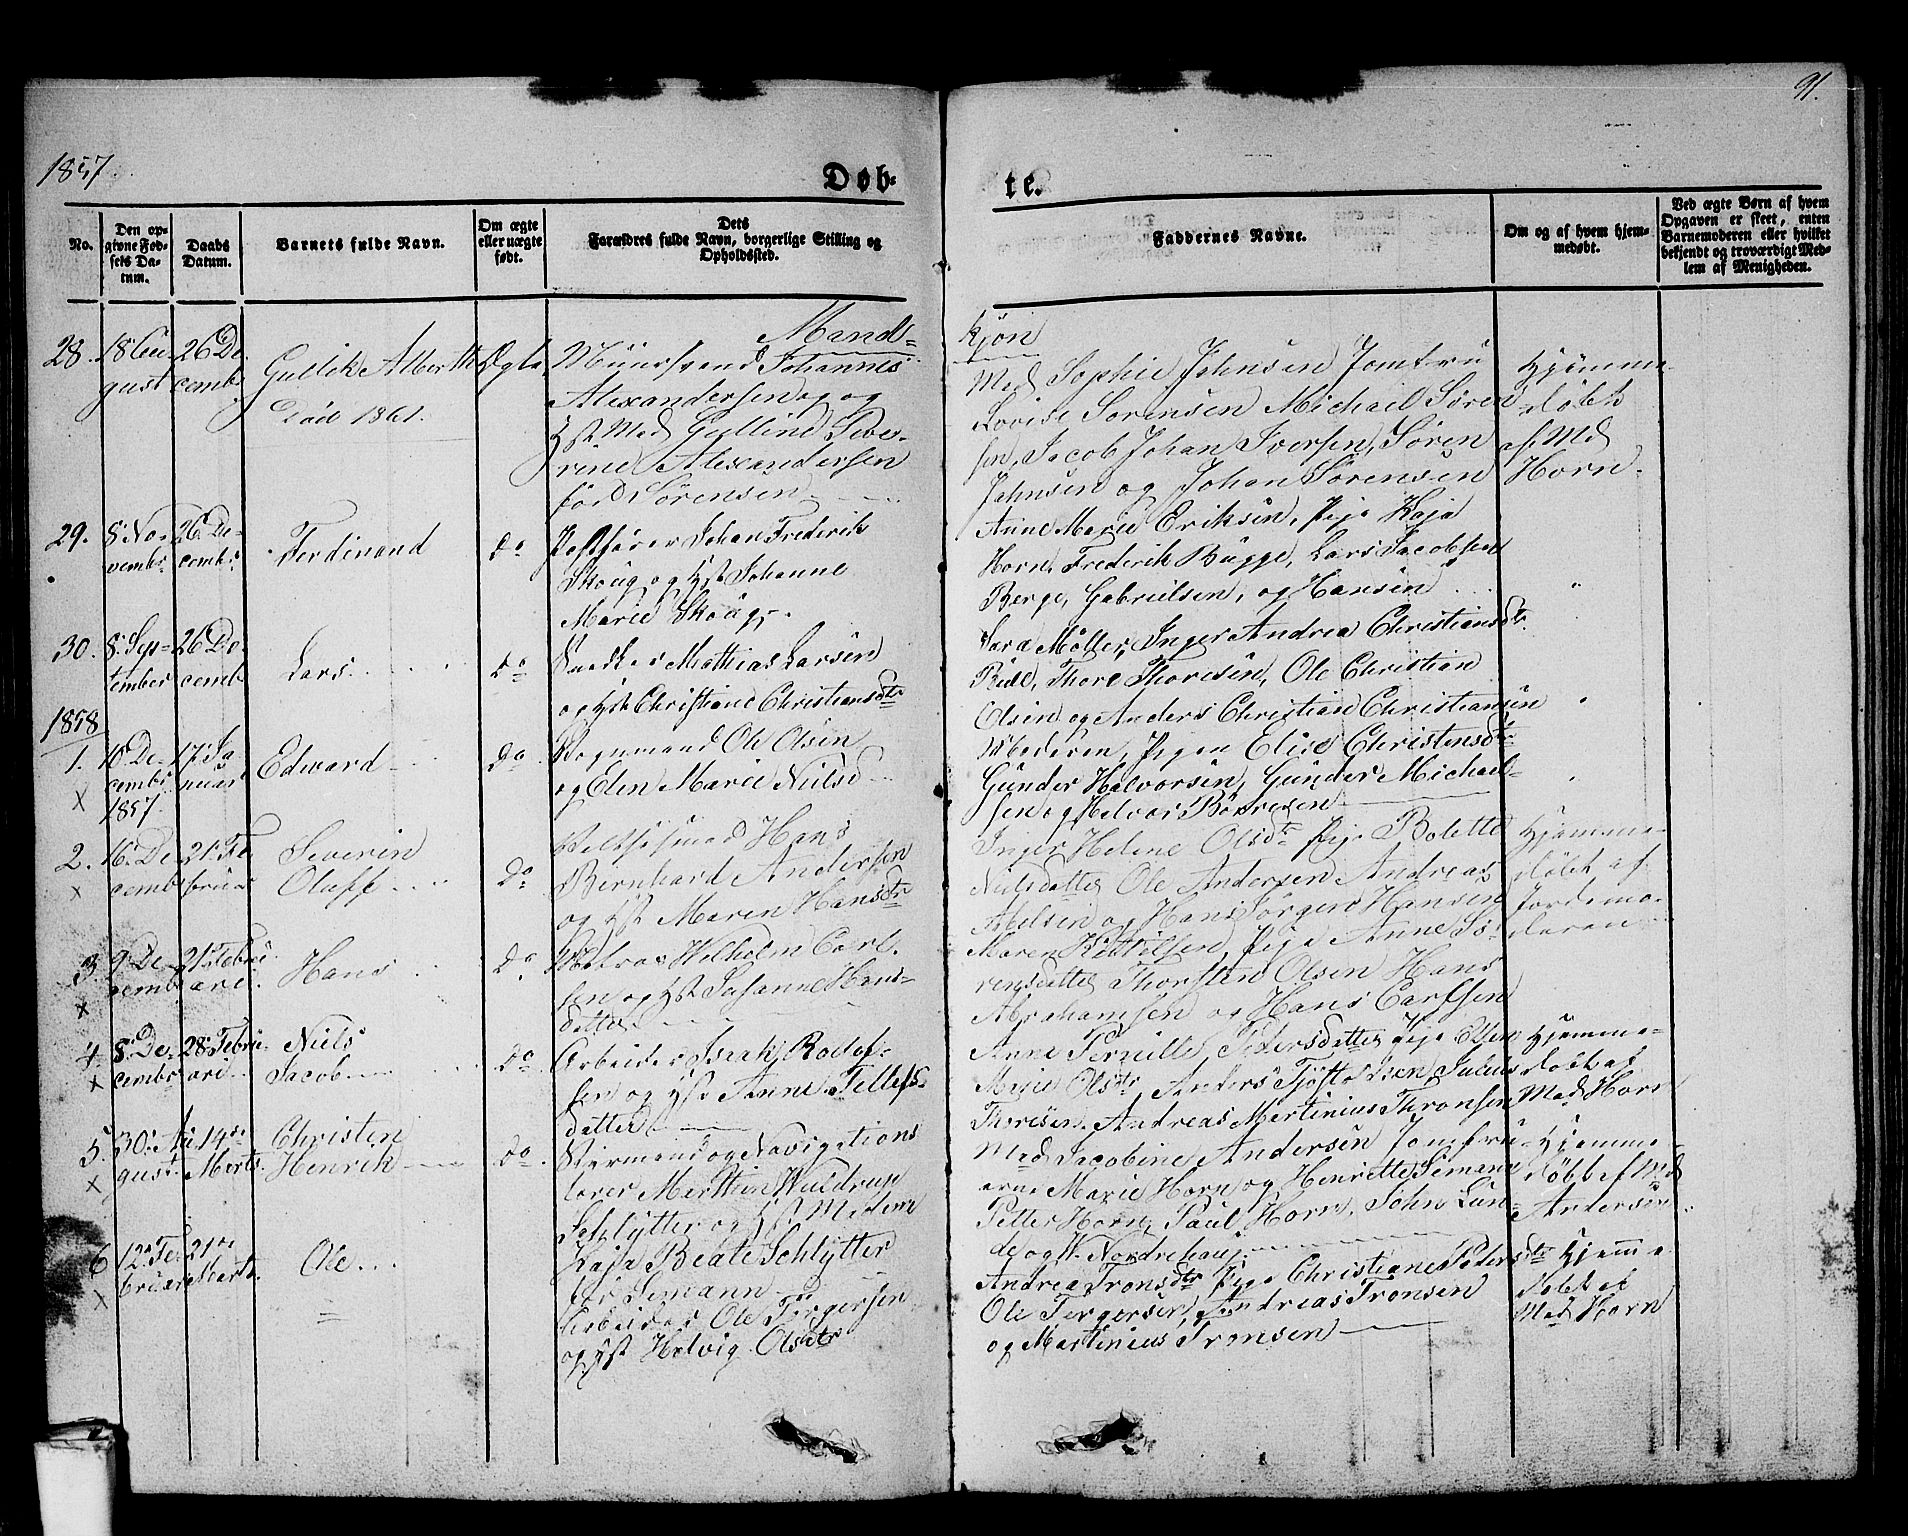 91.
1857
Døb-
te.
No.
Den op-
givne Fød-
sels Da-
tum.
Daabs
Datum.
Barnets fulde Navn.
Om ægte
eller uægte
født.
Dets
Forældres fulde Navn, borgerlige Stilling og
Opholdssted.
Faddernes Navne.
Om og af hvem hjem-
medøbt.
Ved ægte Børn af hvem
Opgaven er skeet, enten
Barnemoderen eller hvilket
bekjendt og troværdigt Med-
lem af Menigheden.
Mands-
kjøn
28.
18 Au-
gust
26 De-
cembr
Gullik Alberth
Død 1861.
Ægte
Muursvend Johannes
Alexandersen og
Hst. Mad Gulline Seve-
rine Alexandersen
fød Sørensen
Mad Sophie Johnsen Jomfru
Lovise Sørensen Michail Søren-
sen, Jacob Johan Iversen, Søren
Johnsen og Johan Sørensen
Hjemme-
døbt
af Md
Horn.
29.
8 No-
vembr
26 De-
cembr
Ferdinand
Do
Postfører Johan Frederik
Skoug og Hst Johanne
Marie Skoug
Anne Marie Eriksen, Pige Kaja
Horn, Frederik Bugge, Lars Jacobsen
Berge, Gabrielsen, og Hansen
30.
8 Sep-
tember
26 De-
cemb
Lars
Do
Mathias Larsen
og Hst Christiane Christiansdtr
Sara Møller, Inger Andrea Christiansdtr.
Bue, Thore Thoresen, Ole Christian
Olsen og Anders Christian Christiansen
1858
1.
x
10 De-
cembr
1857.
17 Ja
nuar
Edward
Do
Ole Olsen
og Elen Marie Nielsd
Moderen, Pigen Elise Christensdtr
Gunder Halvorsen, Gunder Michael-
sen og Helvor Børresen
2.
x
16 De-
cembr
21 Fe-
bruar
Severin
Oluff
Do
Hans
Bernhard Andersen
og Hst Maren Hansdtr
Inger Helene Olsdtr Pige Bolette
Nielsdatter Ole Andersen Andreas
Nielsen og Hans Jørgen Hansen
Hjemme-
døbt af
Jordemo-
deren
3
x
9 De-
cemb
21 Febru
ari.
Hans
Do
Matros Wilhelm Carl-
sen og Hst Susanne Hans-
datter
Maren Kittilsen, Pige Anne Sø-
rensdatter Thorsten Olsen Hans
Abrahamsen og Hans Carlsen
4.
x
8. De-
cembr
28 Febru-
ari
Niels
Jacob
Do
Arbeider Isak Rolef-
sen og Hst Anne Tellefs-
datter
Anne Pernille Pedersdatter, Pige Elen
Marie Olsdtr Anders Tjøstolvsen, Julius
Thoresen, Andreas Martinius Thronsen
Hjemme-
døbt af
Mad Horn
5.
x
30. Au-
gust
14de
Marts.
Christen
Henrik
Do
Styrmand og Navigations
lærer Merthin Wuldrup
Schlytter og Hst Madam
Kaja Beate Schlytter
før Semann
Mad Jacobine Andersen Jomfru-
erne Marie Horn og Henriette Semann
Petter Horn, Paul Horn, John Lun-
de og N. Nordrehaug
Hjemme-
døbt af Md
Andersen
6
x
12 Fe-
bruar
21de
Marts.
Ole
Arbeider Ole Tergersen
og Hst Helvig Olsdtr
Andrea Tronsdtr Pige Christiane Pedersdtr
Ole Tergersen, Andreas Tronsen
og Martinius Tronsen
Hjemme
døbt af
Mad Horn